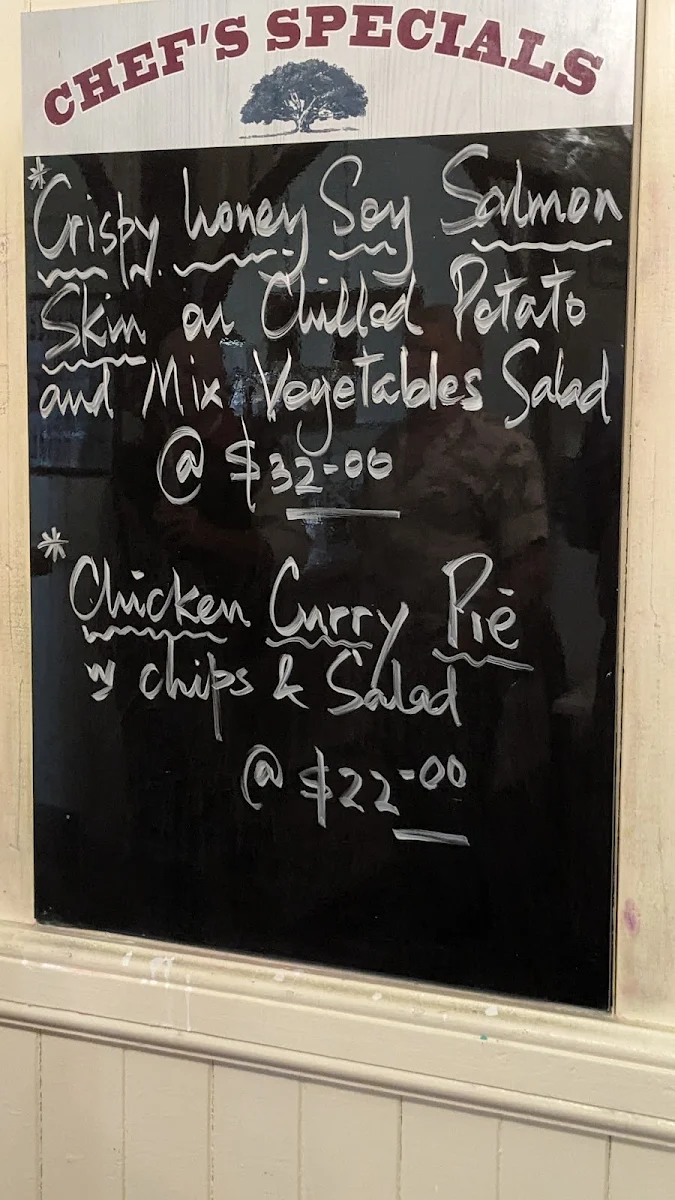 CHEF'S SPECIALS
* Crispy honey Soy Salmon
Skin on Chilled Potato
and Mix Vegetables Salad
@ $32-00
* Chicken Curry Pie
w chips & Salad
@ $22-00